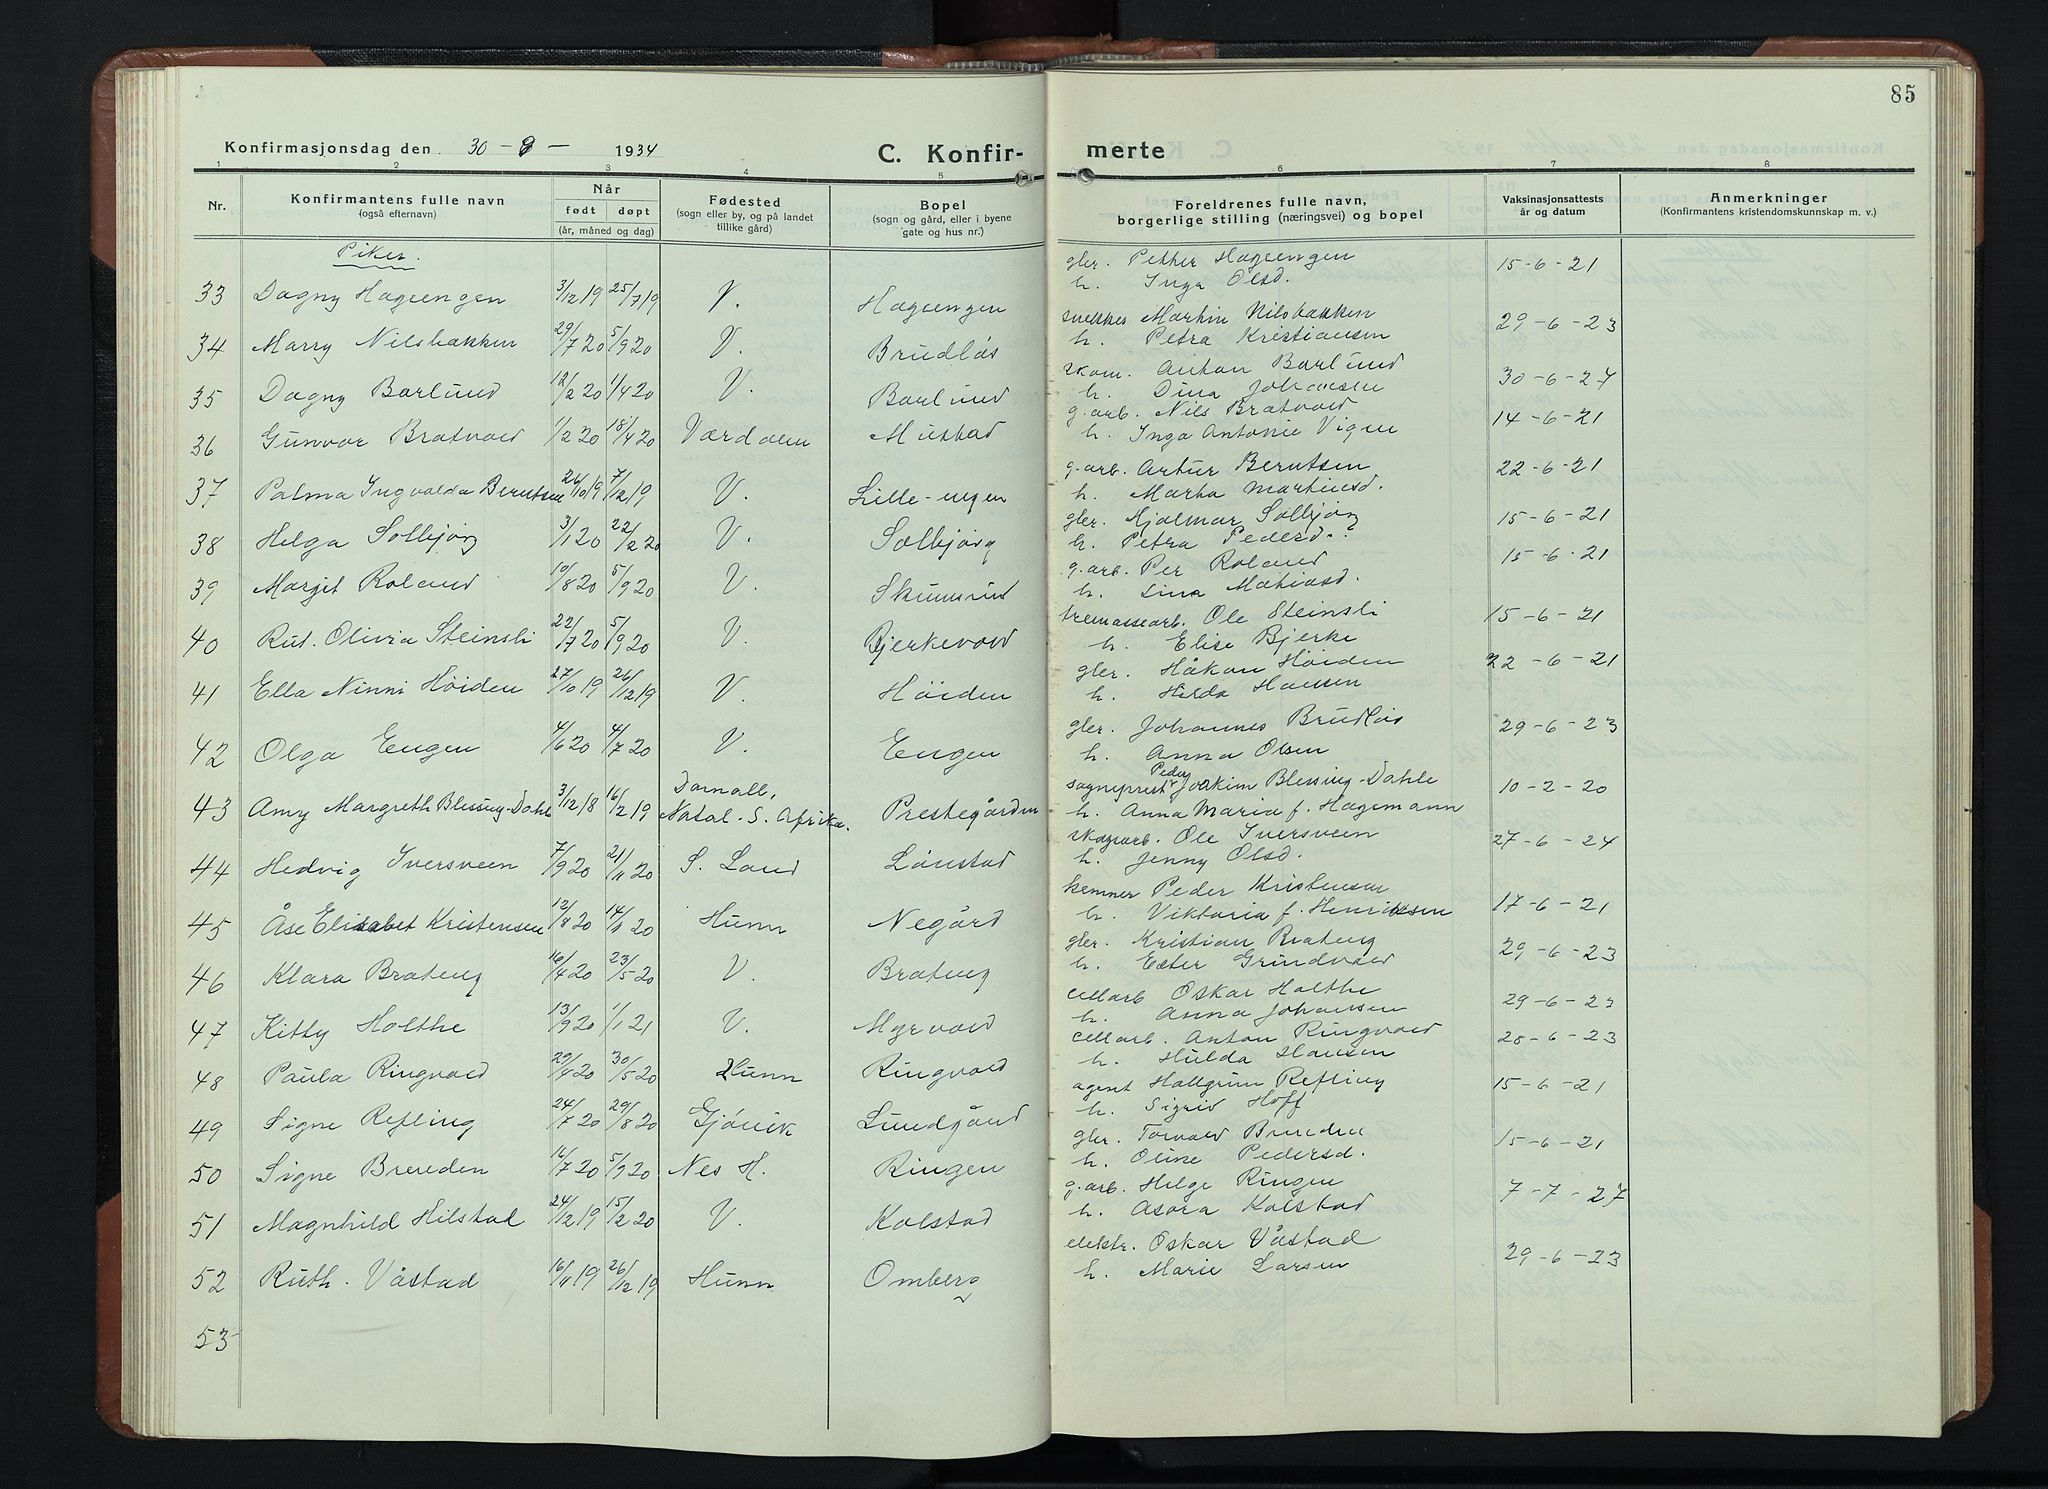 85
Konfirmasjonsdag den 30 - 9 - 1934
C. Konfir- merte
1 2 3 4 5 6 7 8
Nr.
Konfirmantens fulle navn
(også efternavn)
Når
født døpt
(år, måned og dag)
Fødested
(sogn eller by, og på landet
tillike gård)
Bopel
(sogn og gård, eller i byene
gate og hus nr.)
Foreldrenes fulle navn,
borgerlige stilling (næringsvei) og bopel
Vaksinasjonsattests
år og datum
Anmerkninger
(Konfirmantens kristendomskunnskap m. v.)
Piker.
33 Dagny Hageengen 3/12 19 25/7 19 V. Hageengen gbr. Petter Hageengen 15-6-21
h. Inga Olsd.
34 Marry Nilsbakken 29/7 20 5/9 20 V. Brudlås snekker Martin Nilsbakken 29-6-23
h. Petra Kristiansen
35 Dagny Barlund 12/2 20 1/4 20 V. Barlund skom. Anton Barlund 30-6-27
h. Dina Johansen
36 Gunvor Bratvold 1/2 20 18/4 20 Værdalen Mustad g.arb. Nils Bratvold 14-6-21
h. Inga Antonie Vigen
37 Palma Ingvalda Berntsen 26/10 19 7/12 19 V. Lille-engen g.arb. Artur Berntsen 22-6-21
h. Marta Martinsd.
38 Helga Solbjørg 3/1 20 22/2 20 V. Solbjørg gbr. Hjalmar Solbjørg 15-6-21
h. Petra Pedersd.
39 Marjet Roland 10/8 20 5/9 20 V. Skunsrud g.arb. Per Roland 15-6-21
h. Lina Matiasd.
40 Rut. Olivia Steinsli 22/7 20 5/9 20 V. Bjerkevold tremassearb. Ole Steinsli 15-6-21
h. Elise Bjerke
41 Ella Ninni Höiden 27/10 19 26/12 19 V. Höiden gbr. Håkon Höiden 22-6-21
h. Hilda Hansen
42 Olga Engen 4/6 20 4/7 20 V. Engen gbr. Johannes Brudlås 29-6-23
h. Anna Olsen
43 Amy Margreth Blessing-Dahle 3/12 18 16/2 19 Darnall, Natal. S. Afrika. Prestegården sogneprest Peder Joakim Blessing-Dahle 10-2-20
h. Anna Maria f. Hagemann
44 Hedvig Iversveen 7/9 20 21/11 20 S. Land Lönstad skogsarb. Ole Iversveen 27-6-24
h. Jenny Olsd.
45 Åse Elisabet Kristensen 12/8 20 14/11 20 Hunn Negård kemner Peder Kristensen 17-6-21
h. Viktoria f. Henriksen
46 Klara Brateng 16/4 20 23/5 20 V. Brateng gbr. Kristian Brateng 29-6-23
h. Ester Grindvold
47 Kitty Holthe 13/9 20 1/1 21 V. Myrvold cellarb Oskar Holthe 29-6-23
h. Anna Johansen
48 Paula Ringvold 29/4 20 30/5 20 Hunn Ringvold cellarb. Anton Ringvold 28-6-23
h. Hulda Hansen
49 Signe Refling 24/7 20 29/8 20 Gjövik Lundgård agent Hallgrim Refling 15-6-21
h. Sigrid Hoff
50 Signe Breeden 16/7 20 5/9 20 Nes H. Ringen gbr. Torvald 15-6-21
h. Oline Pedersd.
51 Magnhild Hilstad 24/12 19 15/2 20 V. Kolstad g.arb. Helge Ringen 7-7-27
h. Asora Kolstad
52 Ruth. Våstad 16/11 19 26/12 19 Hunn Omberg elektr. Oskar Våstad 29-6-23
h. Marie Larsen
53